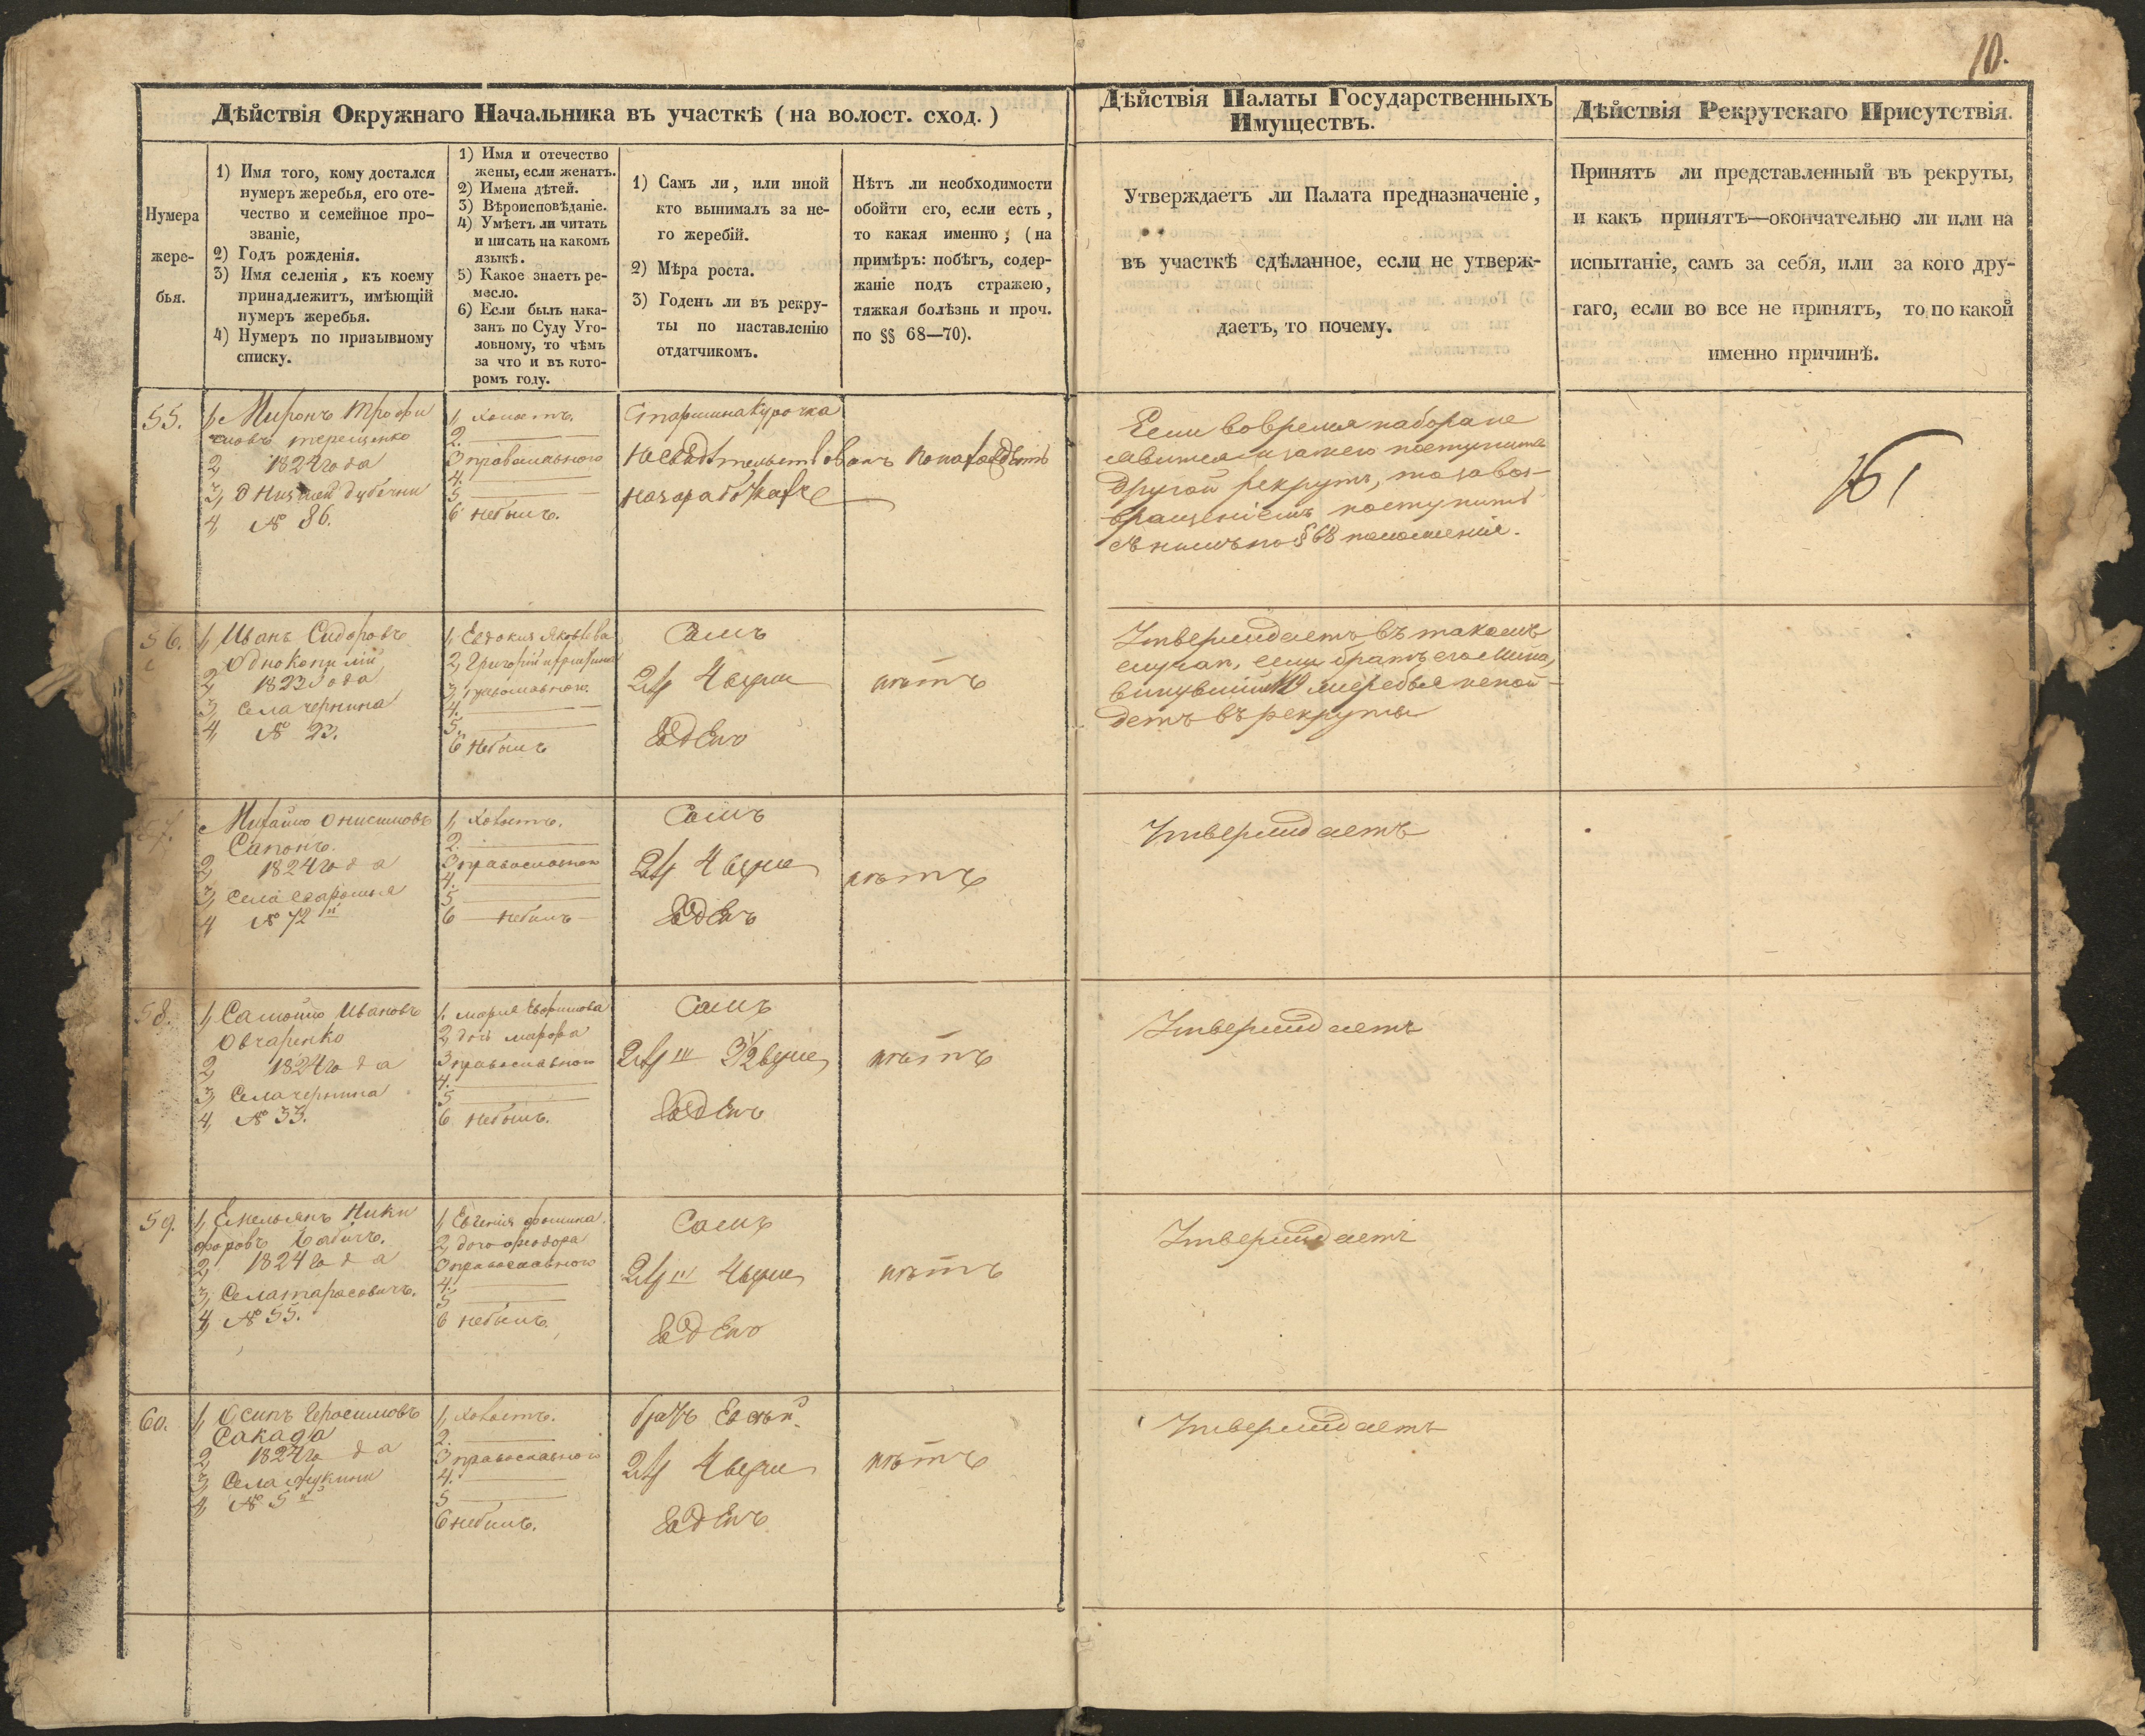 10.
Дѣйствія Окружнаго Начальника въ участкѣ (на волост. сход.)
Нумера
жере-
бья.
1) Имя того, кому достался
нумеръ жеребья, его оте-
чество и семейное про-
званіе,
2) Годъ рожденія.
3) Имя селенія, къ коему
принадлежитъ, имѣющій
нумеръ жеребья.
4) Нумеръ по призывному
списку.
1) Имя и отечество
жены, если женатъ.
2) Имена дѣтей.
3) Вѣроисповѣданіе.
4) Умѣетъ ли читать
и писать на какомъ
языкѣ.
5) Какое знаетъ ре-
месло.
6) Если былъ нака-
занъ по Суду Уго-
ловному, то чѣмъ
за что и въ кото-
ромъ году.
1) Самъ ли, или иной
кто вынималъ за не-
го жеребій.
2) Мѣра роста.
3) Годенъ ли въ рекру-
ты по наставленію
отдатчикомъ.
Нѣтъ ли необходимости
обойти его, если есть,
то какая именно; (на
примѣръ: побѣгъ, содер-
жаніе подъ стражею,
тяжкая болѣзнь и проч.
по §§ 68—70).
Дѣйствія Палаты Государственныхъ
Имуществъ.
Утверждаетъ ли Палата предназначеніе,
въ участкѣ сдѣланное, если не утверж-
даетъ, то почему.
Дѣйствія Рекрутскаго Присутствія.
Принятъ ли представленный въ рекруты,
и какъ принятъ—окончательно ли или на
испытаніе, самъ за себя, или за кого дру-
гаго, если во все не принятъ, то по какой
именно причинѣ.
55.
1, Миронъ Трофи
мовъ терещенко
2, 1824 года
3, д Низшей дубечни
4, № 86.
1, Холостъ.
2.
3 православного
4.
5
6 небылъ.
Старшина Курочка
несвѣдѣтельствованъ
назаработкахъ
Если вовремя набора не
явится и занего поступитъ
другой рекрутъ, то завоз-
вращеніемъ поступить
съ нимъ по § 68 положенія.
56.
1, Иванъ Сидоровъ
Однокопилій
2, 1823 года
3, Села чернина
4, № 23.
1, Евдокия Яковлева
2, Григорій
3, православного.
4.
5.
6 небылъ
Самъ
2 ар 4 верш
Годенъ
нѣтъ
Утверждаетъ въ такомъ
случаѣ, если братъ его
жеребье непой-
детъ въ рекруты
57.
Михайло Онисимовъ
Сапонъ.
2, 1824 года
3, Села
4, № 72й
1, Холостъ.
2.
3 православного
4.
5
6 небылъ
Самъ
2 ар 4 верш
Годенъ
нѣтъ
Утверждаетъ
58.
1, Самойло Ивановъ
Овчаренко
2, 1824 года
3, Села чернина
4, № 33.
1. мария Ефимова
2, дочь
3 православного
4.
5
6 небылъ.
Самъ
2 ар 3 1/2 верш
Годенъ
нѣтъ
Утверждаетъ
59.
1, Емельянъ Ники
форовъ Бабичъ.
2, 1824 года
3, Села тарасовичъ.
4, № 55.
1, Евгения фомина.
2, дочь феодора
3 православного
4.
5
6 небылъ.
Самъ
2 ар 4 верш
Годенъ
нѣтъ
Утверждаетъ
60.
1, Осипъ Герасимовъ
Сакада
2, 1824 года
3, Села жукини
4, № 5й
1, Холостъ.
2.
3 православного
4.
5
6 небылъ.
братъ
2 ар 4 верш
Годенъ
нѣтъ
Утверждаетъ